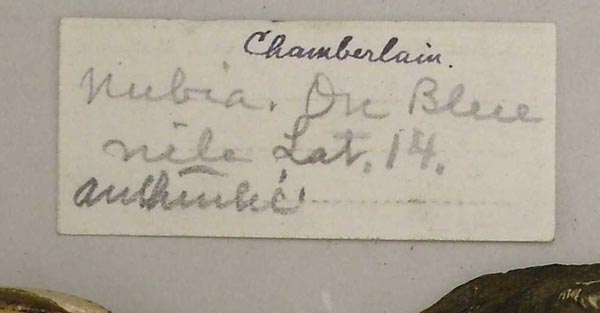 Chamberlain.
Nubia. On Blue
nile Lat. 14.
authentic